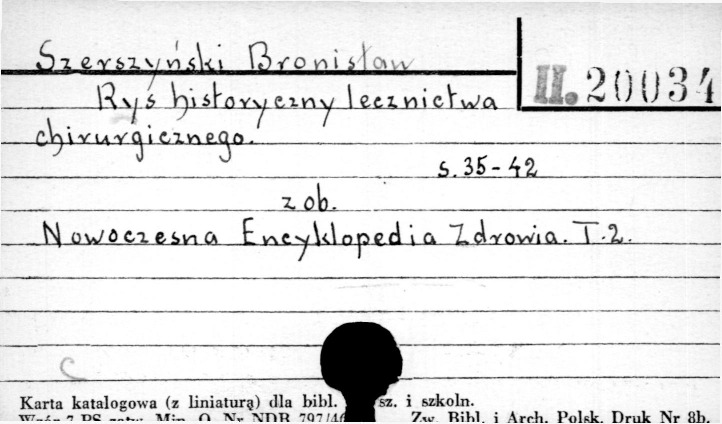 Szerszyński Bronisław
II. 20034
Rys historyczny lecznictwa
chirurgicznego.
s. 35-42
zob.
Nowoczesna Encyklopedia Zdrowia. T.2.
C
Karta katalogowa (z liniaturą) dla bibl. sz. i szkoln.
Wzór 7 PS zatw. Min. O. Nr NDB 797/46 Zw. Bibl. i Arch. Polsk. Druk Nr 8b.